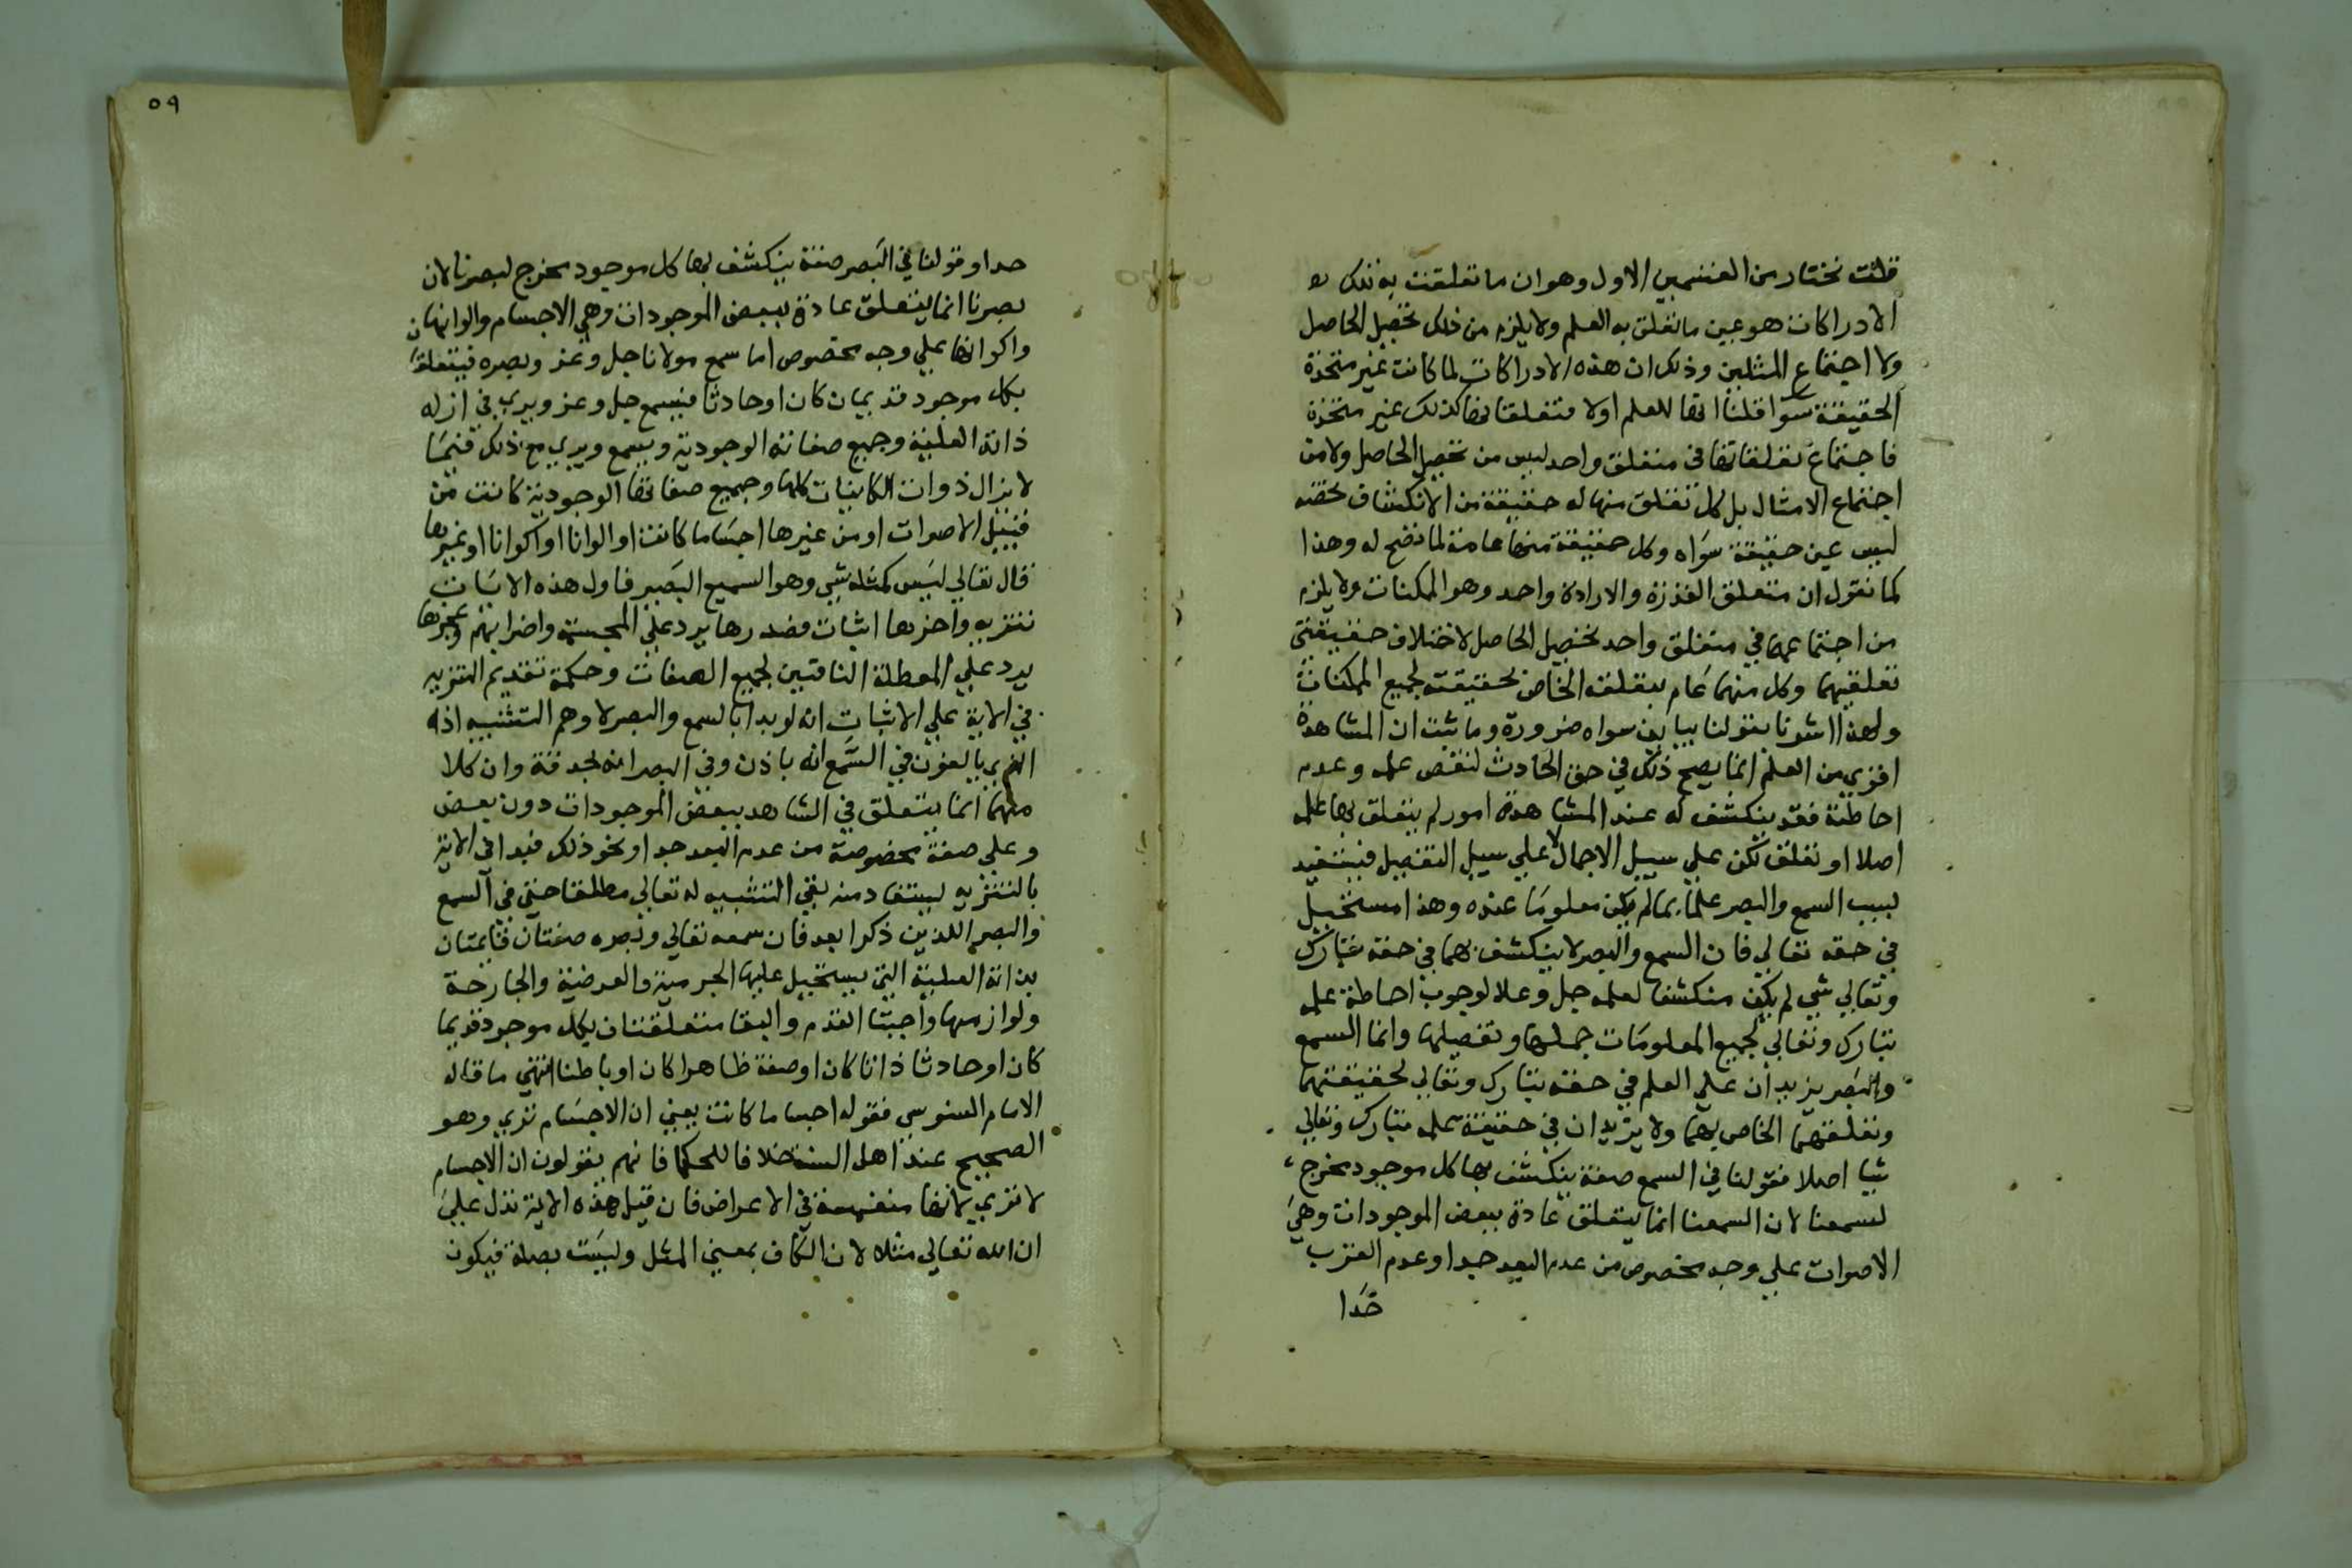 قلت نختار من القسمين الاول وهو ان ما تعلقت به تلك
الادراكات هو عين ما تعلق به العلم ولا يلزم من ذلك تحصيل الحاصل
ولا اجتماع المثلين وذلك ان هذه الادراكات لما كانت غير متحدة
الحقيقة سوا قلنا انها للعلم اولا فتعلقاتها كذلك غير متحدة
فاجتماع تعلقاتها في متعلق واحد ليس من تحصيل الحاصل ولا من
اجتماع الامثال بل كل تعلق منها له حقيقة من الانكشاف تخصه
ليس عين حقيقة سواه وكل حقيقة منها عامة لما تضح له وهذا
كما نقول ان متعلق القدرة والارادة واحد وهو الممكنات ولا يلزم
من اجتماعهما في متعلق واحد تحصيل الحاصل لاختلاف حقيقتي
تعلقيهما وكل منهما عام بتعلقه الخاص لحقيقته لجميع الممكنات
ولهذا اشرنا بقولنا يباين سواه ضرورة وما ثبت ان المشاهدة
اقوي من العلم انما يصح ذلك في حق الحادث لنقص علمه وعدم
احاطته فقد ينكشف له عند المشاهدة امور لم يتعلق بها علمه
اصلا او تعلق لكن علي سبيل الاجمال لا علي سبيل التفصيل فيستفيد
بسبب السمع والبصر علما بما لم يكن معلوما عنده وهذا مستحيل
في حقه تعالي فان السمع والبصر لا ينكشف بهما في حقه تبارك
وتعالي شي لم يكن منكشفا لعلمه جل وعلا لوجوب احاطة علمه
تبارك وتعالي لجميع المعلومات جملها وتفصيلها وانما السمع
والبصر يزيدان علي العلم في حقه تبارك وتعالي لحقيقتهما
وتعلقهما الخاص بهما ولا يزيدان في حقيقة علمه تبارك وتعالي
شيا اصلا فقولنا في السمع صفة ينكشف بها كل موجود مخرج
لسمعنا لان السمعنا انما يتعلق عادة ببعض الموجودات وهي
الاصوات علي وجه مخصوص من عدم البعد جدا وعدم القرب
جدا
٥٩
جدا وقولنا في البصر صفة ينكشف بها كل موجود مخرج لبصرنا لان
بصرنا انما يتعلق عادة ببعض الموجودات وهي الاجسام والوانها
واكوانها علي وجه مخصوص اما سمع مولانا جل وعز وبصره فيتعلقا
بكل موجود قديما كان او حادثا فيسمع جل وعز ويري في ازله
ذاته العلية وجميع صفاته الوجودية ويسمع ويري مع ذلك فيما
لا يزال ذوات الكاينات كلها وجميع صفاتها الوجودية كانت من
قبيل الاصوات او من غيرها اجساما كانت او الوانا او اكوانا او غيرها
قال تعالي ليس كمثله شي وهو السميع البصير فاول هذه الايات
تنزيه واخرها اثبات فصدرها يرد علي المجسمة واضرابهم وعجزها
يرد علي المعطلة النافين لجميع الصفات وحكمة تقديم التنزيه
في الاية علي الاثبات انه لو بدا بالسمع والبصر لاوهم التشبيه اذ
الذي يالفون في السمع انه باذن وفي البصر انه بحدقة وان كلا
منهما انما يتعلق في الشاهد ببعض الموجودات دون بعض
وعلي صفة مخصوصة من عدم البعد جدا ونحو ذلك فبدا في الاية
بالتنزيه ليستفاد منه نفي التشبيه له تعالي مطلقا حتي في السمع
والبصر اللذين ذكرا بعد فان سمعه تعالي وبصره صفتان قايمتان
بذاته العلية التي يستحيل عليها الجرمية والعرضية والجارحة
ولوازمها واجبتا القدم والبقا متعلقتان بكل موجود قديما
كان او حادثا ذاتا كان او صفة ظاهرا كان او باطنا انتهي ما قاله
الامام السنوسي فقوله اجساما كانت يعني ان الاجسام تري وهو
الصحيح عند اهل السنة خلافا للحكما فانهم يقولون ان الاجسام
لا تري لانها منغمسة في الاعراض فان قيل هذه الاية تدل علي
ان لله تعالي مثلا لان الكاف بمعني المثل وليست بصلة فيكون